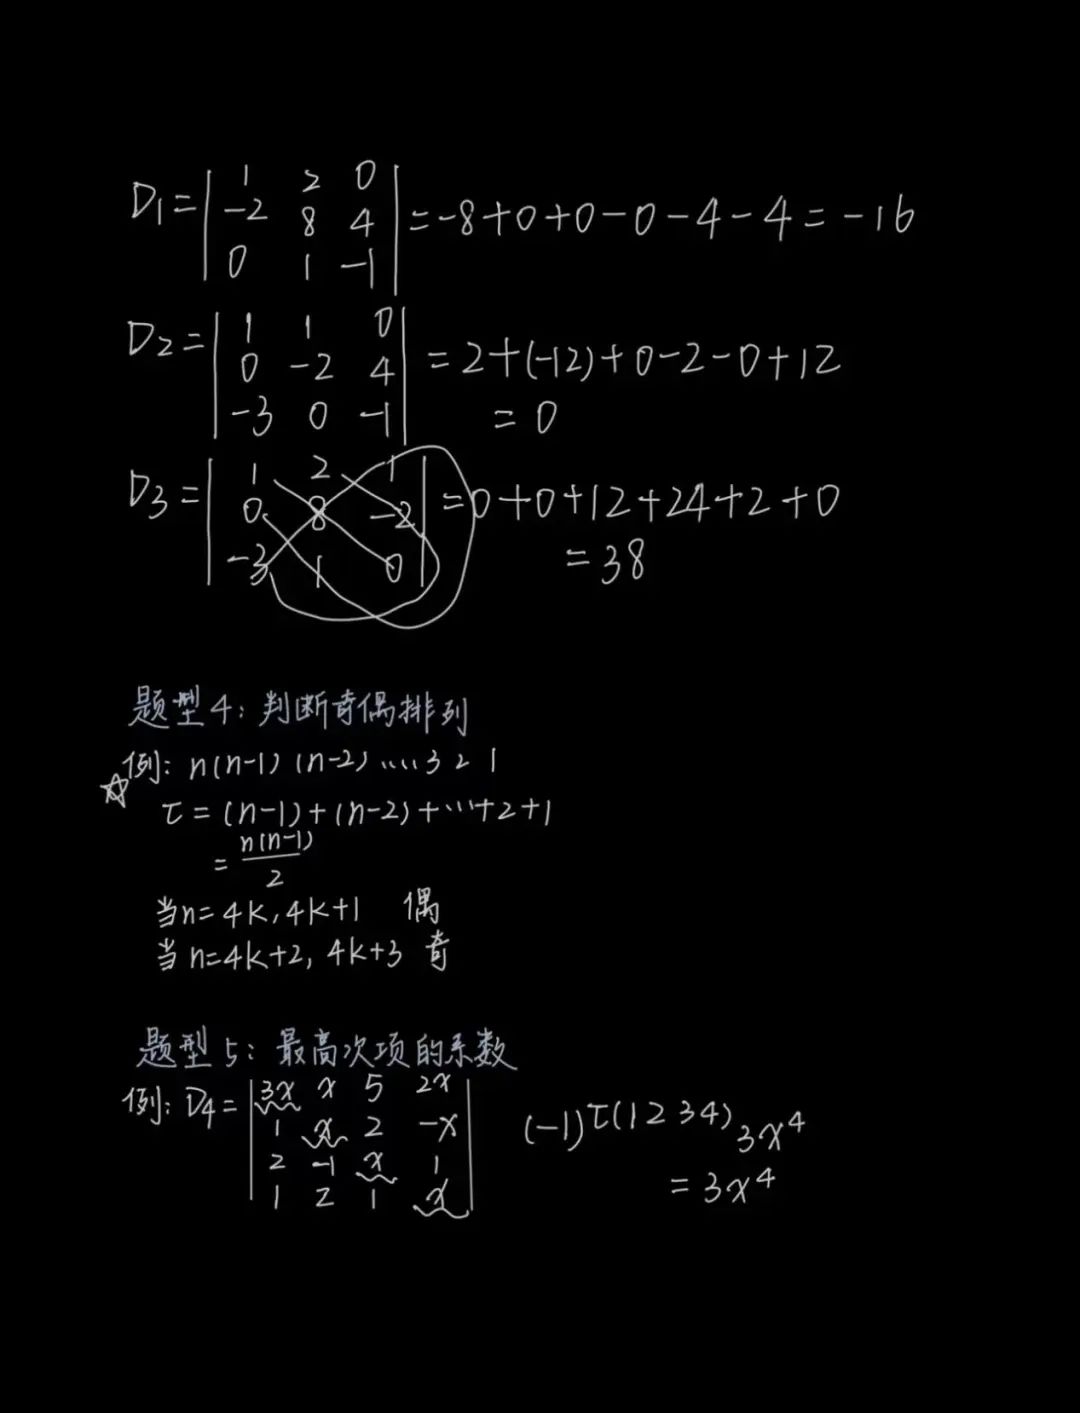 D1 = | 1 2 0 |
| -2 8 4 | = -8+0+0-0-4-4 = -16
| 0 1 -1 |
D2 = | 1 1 0 |
| 0 -2 4 | = 2+(-12)+0-2-0+12
| -3 0 -1 | = 0
D3 = | 1 2 1 |
| 0 8 -2 | = 0+0+12+24+2+0
| -3 1 0 | = 38
题型4：判断奇偶排列
☆例：n(n-1)(n-2)....3 2 1
τ = (n-1)+(n-2)+...+2+1
= n(n-1)/2
当n=4k, 4k+1 偶
当n=4k+2, 4k+3 奇
题型5：最高次项的系数
例：D4 = | 3x x 5 2x |
| 1 x 2 -x | (-1)^τ(1 2 3 4) 3x^4
| 2 -1 x 1 |
| 1 2 1 x | = 3x^4